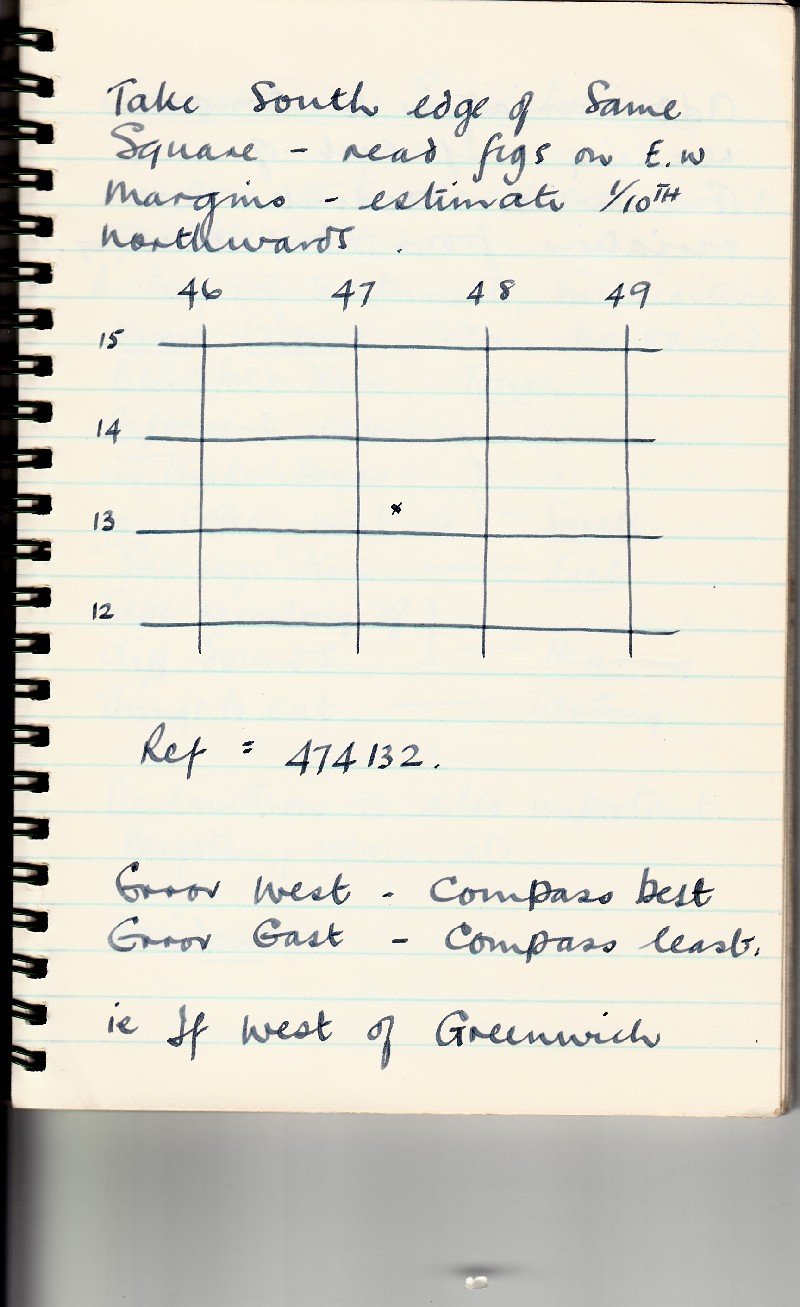 Take South edge of Same
Square - read figs on E.W
Margins - estimate 1/10TH
northwards.
46 47 48 49
15
14
13
12
Ref = 474132.
Error West - Compass best
Error East - Compass least.
ie If west of Greenwich